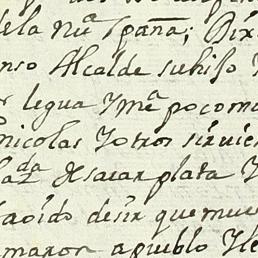 dela nuª españa; Dix
Alcalde suhijo
legua Ymª poco ma
nicolas Yotros siruie
desacar plata Y
aoido desir que mue
maron apueblo Yle